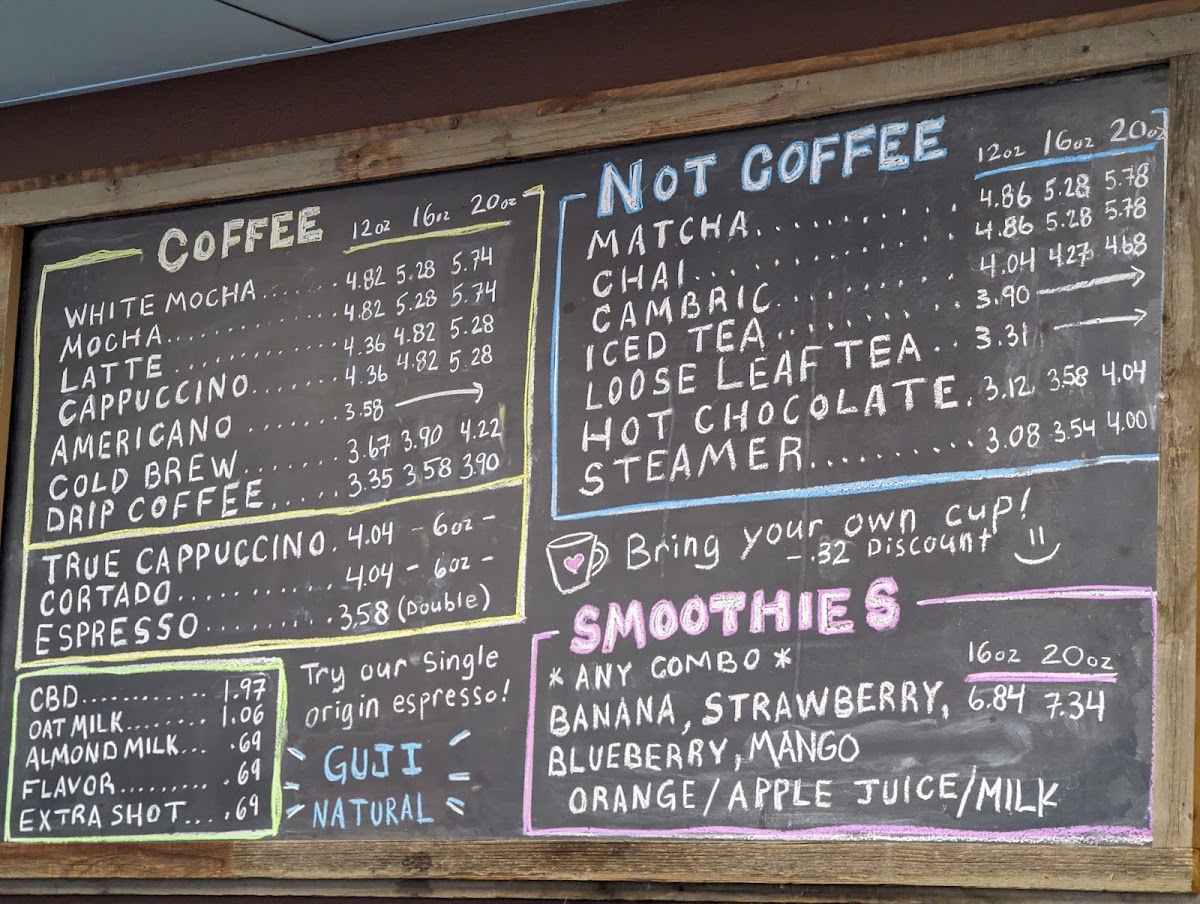 COFFEE 12oz 16oz 20oz
WHITE MOCHA....... 4.82 5.28 5.74
MOCHA............... 4.82 5.28 5.74
LATTE............... 4.36 4.82 5.28
CAPPUCCINO....... 4.36 4.82 5.28
AMERICANO ....... 3.58 →
COLD BREW....... 3.67 3.90 4.22
DRIP COFFEE...... 3.35 3.58 3.90
TRUE CAPPUCCINO. 4.04 - 6oz -
CORTADO........... 4.04 - 6oz -
ESPRESSO......... 3.58 (DOUBLE)
CBD........... 1.97
OAT MILK........ 1.06
ALMOND MILK... .69
FLAVOR......... .69
EXTRA SHOT.... .69
Try our Single
origin espresso!
GUJI
NATURAL
NOT COFFEE 12oz 16oz 20oz
MATCHA........... 4.86 5.28 5.78
CHAI.............. 4.86 5.28 5.78
CAMBRIC......... 4.04 4.27 4.68
ICED TEA........ 3.90 →
LOOSE LEAF TEA.. 3.31 →
HOT CHOCOLATE. 3.12 3.58 4.04
STEAMER......... 3.08 3.54 4.00
Bring your own cup!
-.32 Discount
SMOOTHIES
*ANY COMBO* 16oz 20oz
BANANA, STRAWBERRY, 6.84 7.34
BLUEBERRY, MANGO
ORANGE/APPLE JUICE/MILK